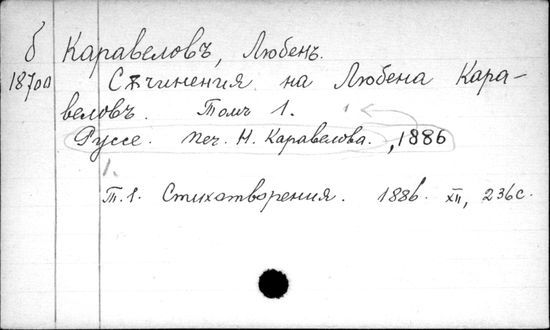 б Каравеловъ, Любенъ.
18700 Съчинения на Любена Кара-
веловъ. Томъ 1.
Руссе. Печ. Н. Каравелова., 1886
1.
Т.1. Стихотворения. 1886. XII, 236 с.